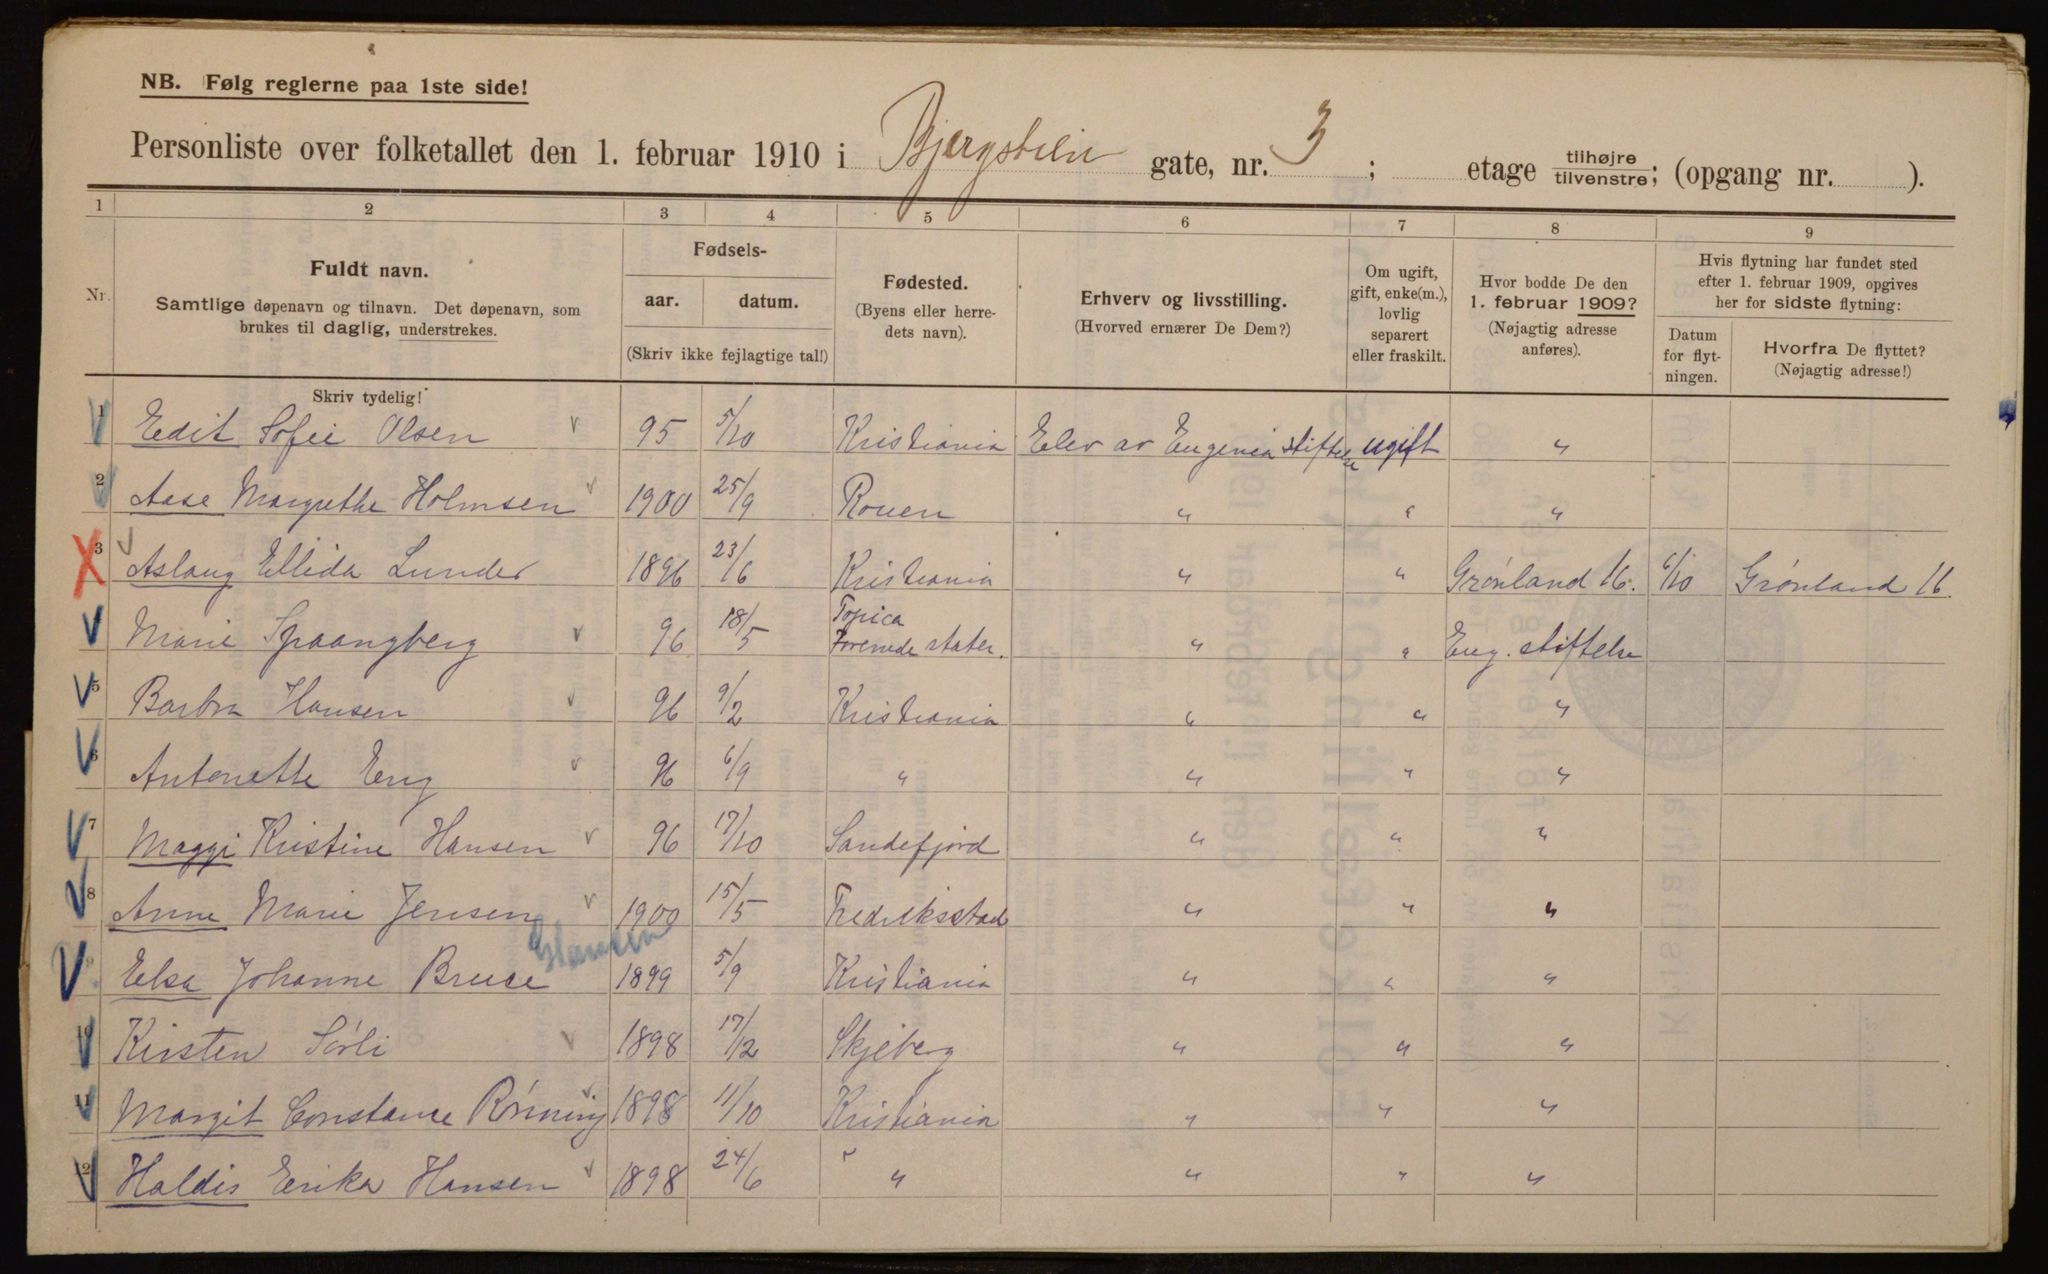 NB. Følg reglerne paa 1ste side!
Personliste over folketallet den 1. februar 1910 i Bjergstien gate, nr. 3 ; etage tilhøjre tilvenstre; (opgang nr. ).
1 2 3 4 5 6 7 8 9
Nr.
Fuldt navn.
Samtlige døpenavn og tilnavn. Det døpenavn, som
brukes til daglig, understrekes.
Skriv tydelig!
Fødsels-
aar. datum.
(Skriv ikke fejlagtige tal!)
Fødested.
(Byens eller herre-
dets navn).
Erhverv og livsstilling.
(Hvorved ernærer De Dem?)
Om ugift,
gift, enke(m.),
lovlig
separert
eller fraskilt.
Hvor bodde De den
1. februar 1909?
(Nøjagtig adresse
anføres).
Hvis flytning har fundet sted
efter 1. februar 1909, opgives
her for sidste flytning:
Datum
for flyt-
ningen.
Hvorfra De flyttet?
(Nøjagtig adresse!)
1 Edit Sofie Olsen 95 5/10 Kristiania Elev av Eugenia stiftelse ugift "
2 Aase Margrethe Holmsen 1900 25/9 Rouen " " "
3 Aslaug Ellida Lunder 1896 23/6 Kristiania " " Grønland 16. 6/10 Grønland 16.
Marie Spaangberg 96 18/5 Topica Forenede stater. " " Eug. stiftelse
5 Barbra Hansen 96 9/2 Kristiania " " "
6 Antonette Eng 96 6/9 " " " "
7 Maggi Kristine Hansen 96 17/10 Sandefjord " " "
8 Anne Marie Jensen 1900 15/5 Fredriksstad " " "
9 Elsa Johanne Bruce Hansen 1899 5/9 Kristiania " " "
10 Kirsten Sørli 1898 17/2 Skjeberg " " "
11 Margit Constance Rønning 1898 11/10 Kristiania " " "
12 Haldis Erika Hansen 1898 24/6 " " " "